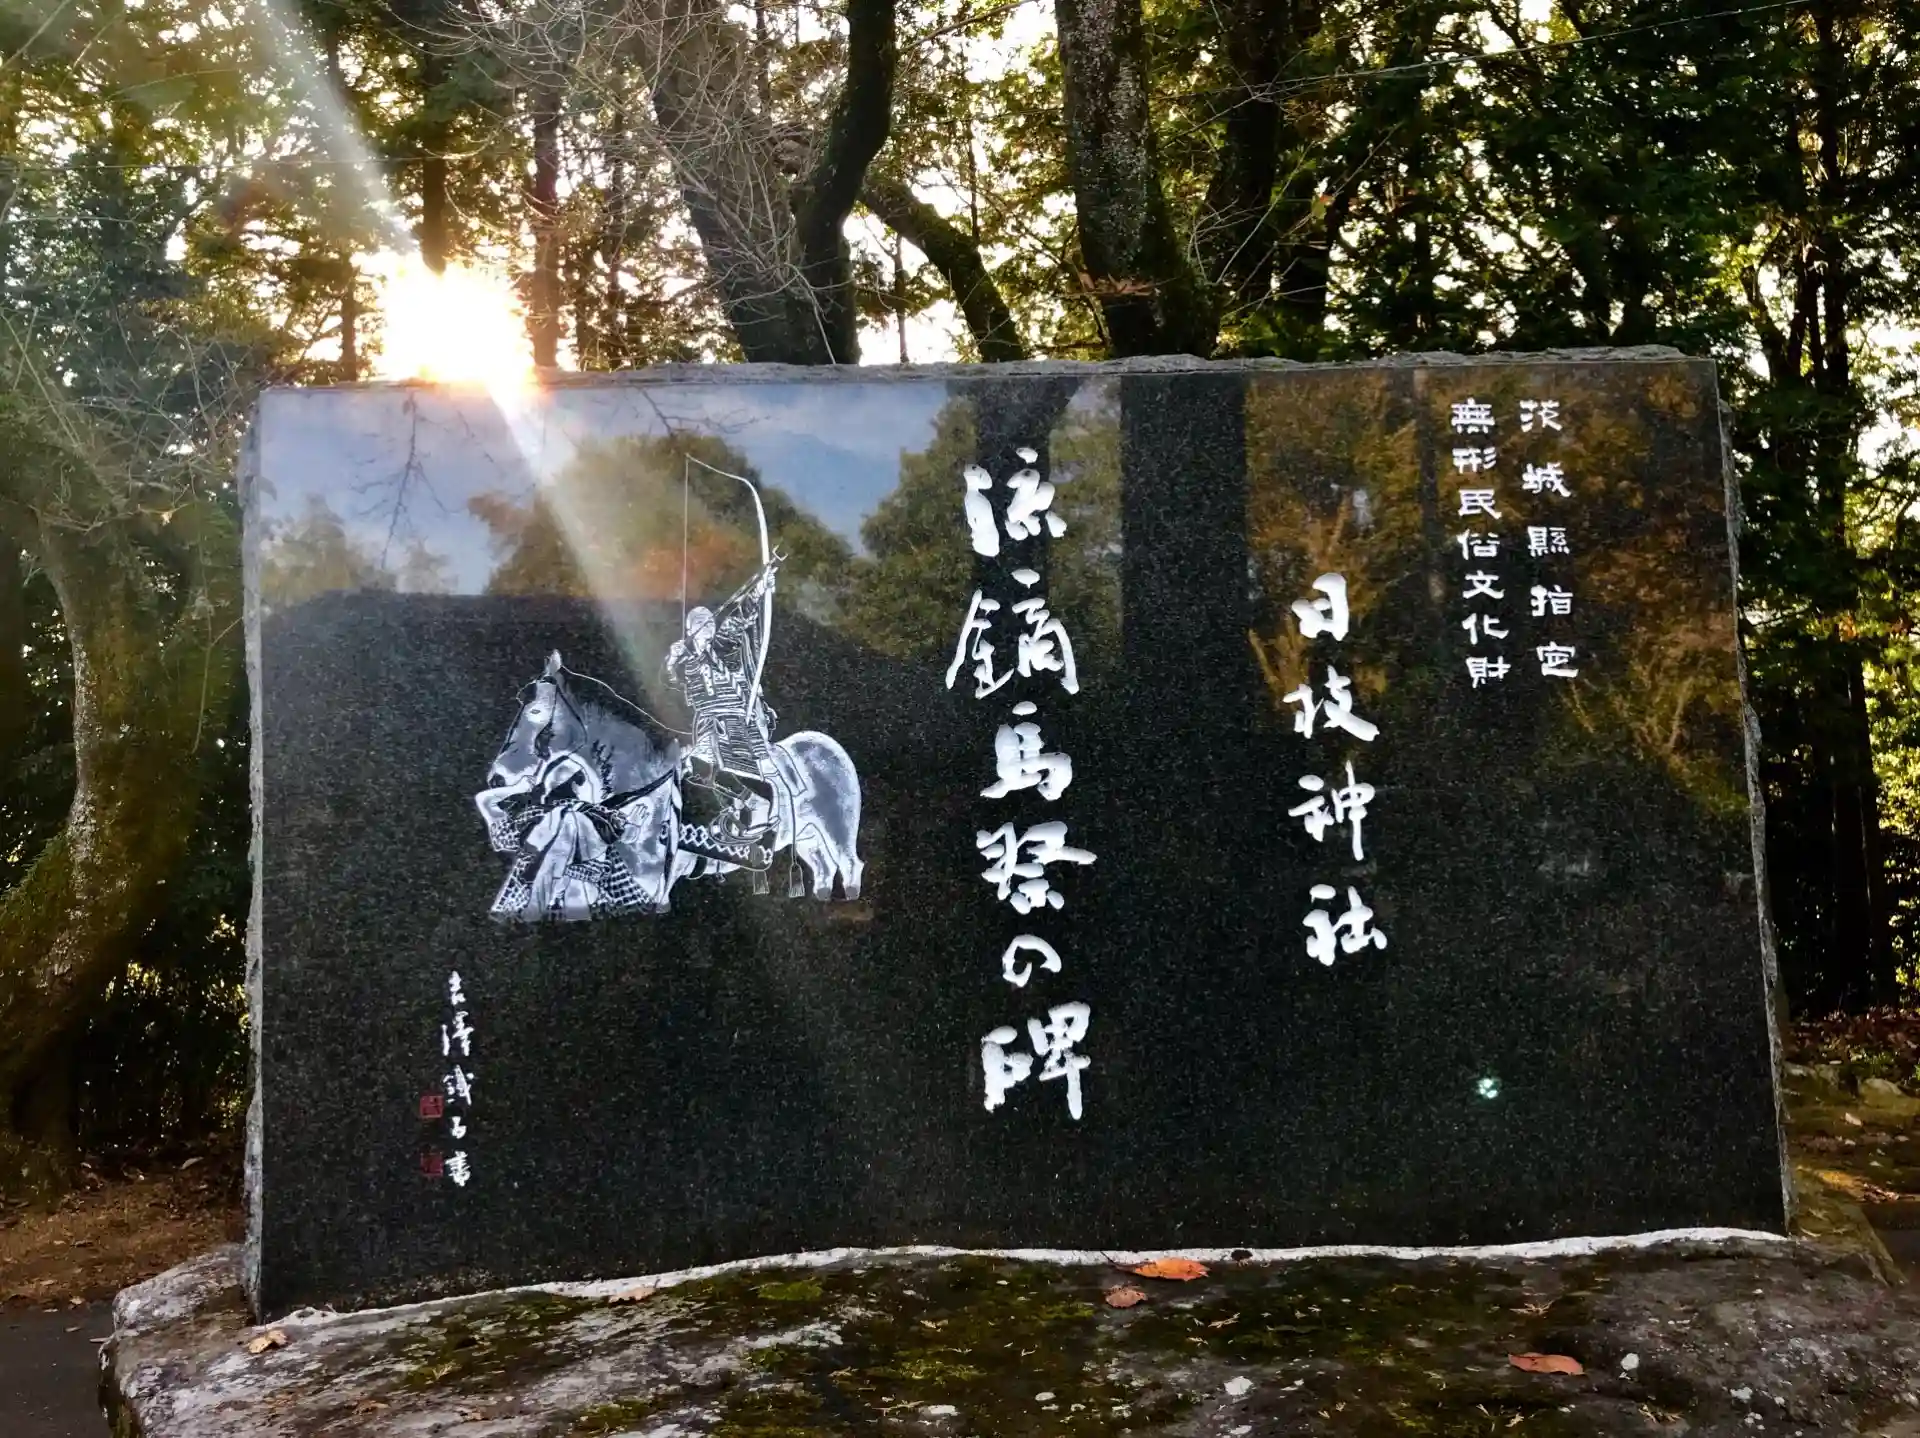 茨城縣指定
無形民俗文化財
日枝神社
流鏑馬祭の碑
吉澤鐵石書